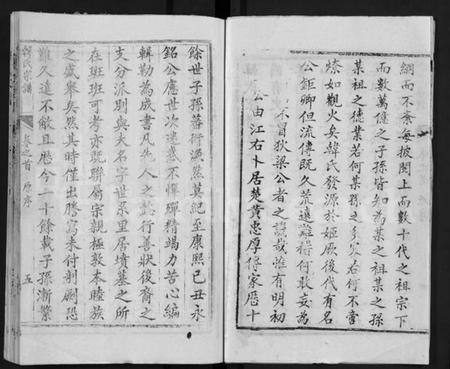 綱而不紊每披閱上而數十代之祖宗下
而數萬億之子孫皆知為某之祖某之孫
某祖之德業若何某孫之多寡若何不啻
燎如觀火矣韓氏發源於姬厥後代有名
公鉅卿但流傳既久荒遠難稽何敢妄為
冒狄梁公者之譏哉惟有明初
公由江右卜居楚黃忠厚傳家歷十
餘世子孫蕃衍漁然莫紀至康熙己丑永
銘公慮世次遺忘不憚殫精竭力苦心編
輯勒為成書凡先人之懿行善狀後裔之
支分派別與夫名字世系里居墳墓之所
在班班可考亦既聯屬宗親極敦本睦族
之盛舉矣然其時僅出謄寫未付剞劂恐
難久遠不敝且歷今一十餘載子孫漸繁
韓氏宗譜
卷之首 原序
五